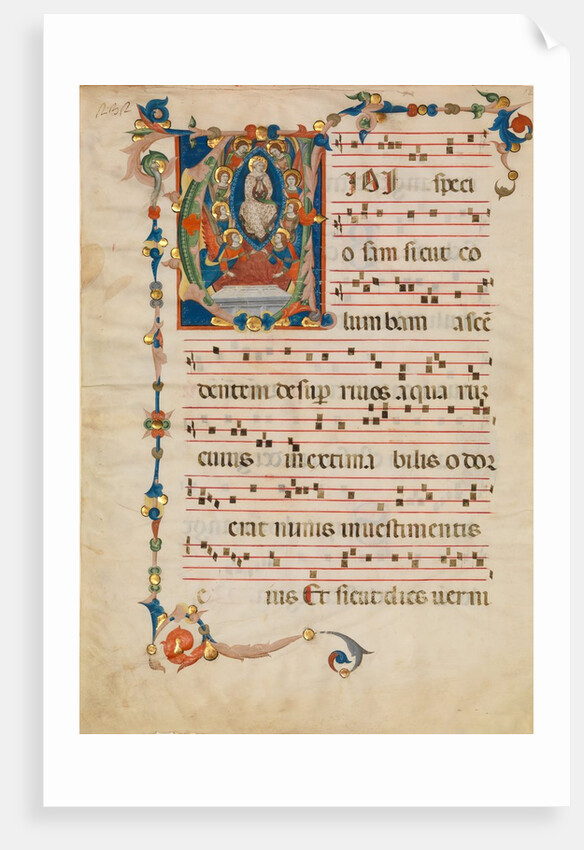 VIDI speci
o sam sicut co
lum bam ascē
dentem desuꝑ riuos aqua rūz
cuius inextima bilis o dor
erat nimis inuestimentis
e ius Et sicut dies uerni